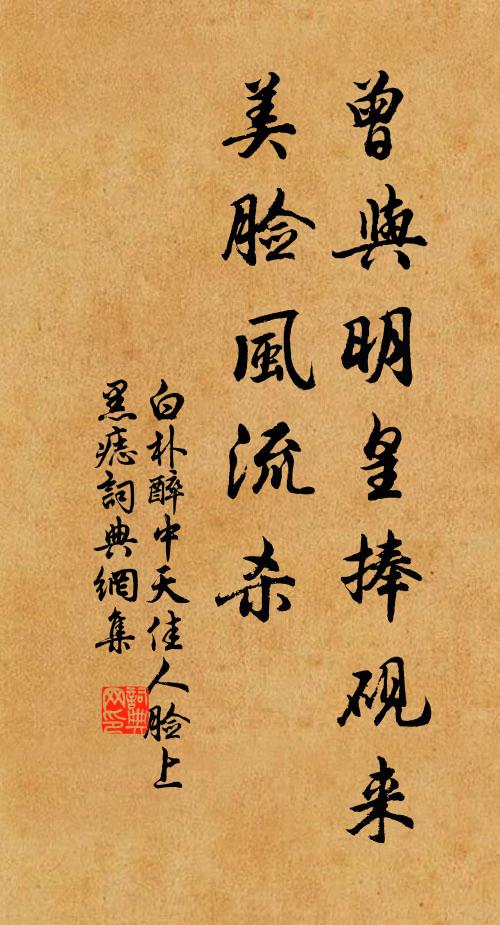 曾與明皇捧硯来
美脸風流杀
白朴醉中天佳人脸上
黑痣詞典網集
詞典网印